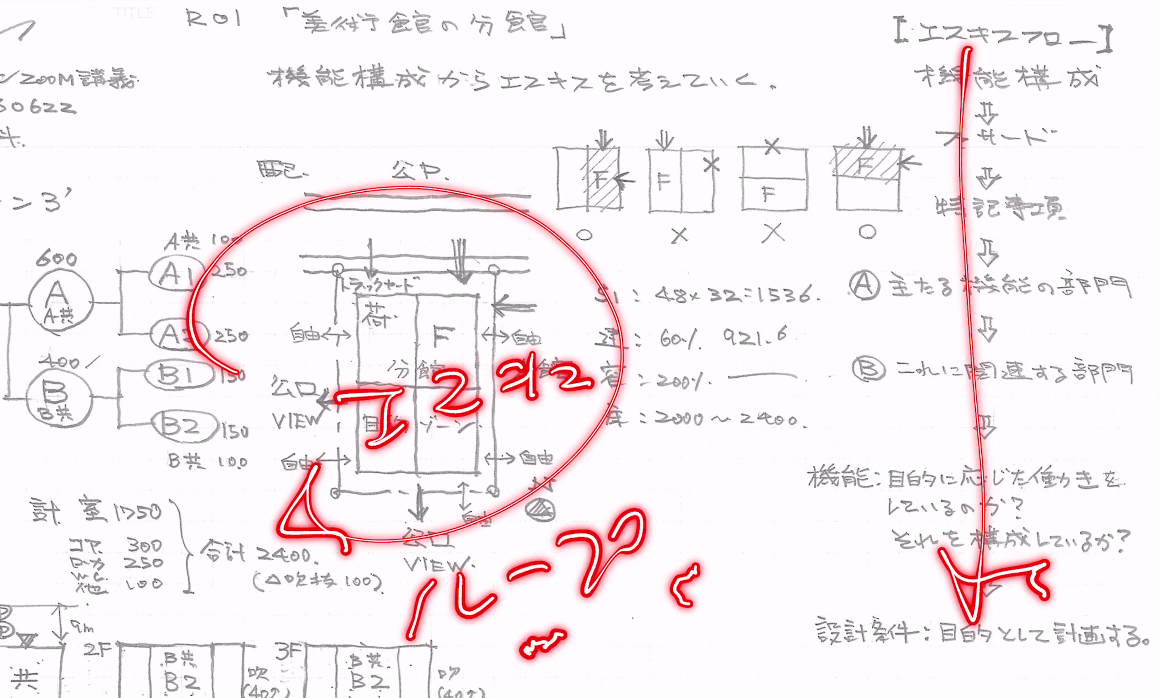 TITLE
R01 「美術館の分館」
[エスキスフロー]
/ZOOM講義
機能構成からエスキスを考えていく.
機能構成
60622
ファサード
特記事項
配.
公P.
F
F
F
F
ン3'
A共 100
600
A
A共
A1 250
250
400
B
B共
B1 150
B2 150
B共 100
トラックヤード
荷
F
自由
自由
分館
公口
VIEW
ゾーン
自由
自由
自由
公口
VIEW
: 48×32=1536.
: 60% 921.6
容: 200%
: 2000~2400.
Ⓐ 主たる機能の部門
Ⓑ これに関連する部門
機能:目的に応じた働きを
しているのか?
それを構成しているか?
設計条件:目的として計画する。
計 室1750
コア 300
250
他 100
合計 2400.
(△吹抜100)
9m
共
2F
B共
B2
吹
3F
B共
B2
吹
エスキス
ループ